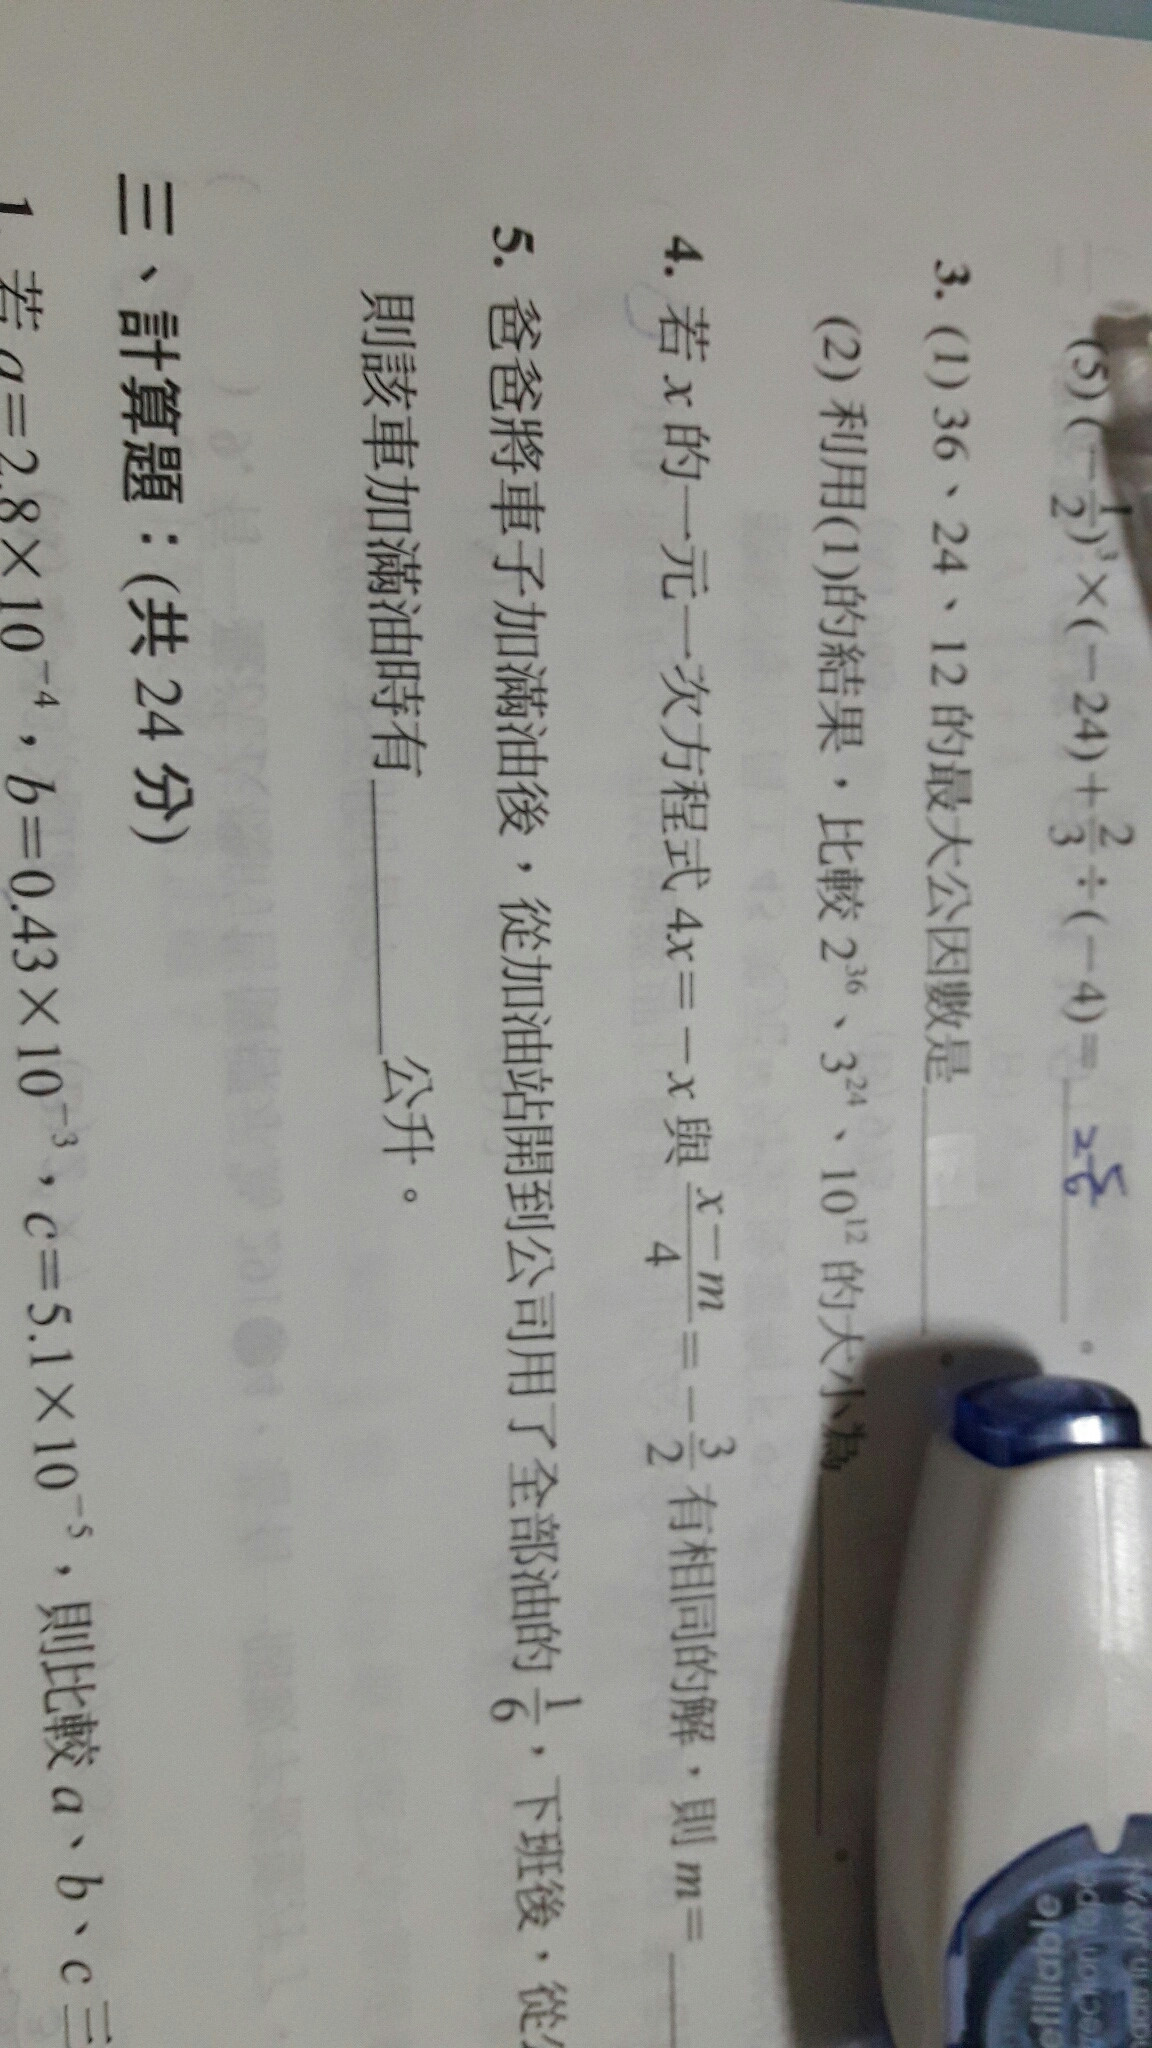 (5) (-\frac{1}{2})³×(-24)+\frac{2}{3}÷(-4)= 2\frac{5}{6} 。
3. (1) 36、24、12 的最大公因數是 ______ 。
(2) 利用(1)的結果，比較 2³⁶、3²⁴、10¹² 的大小為 ______ 。
4. 若 x 的一元一次方程式 4x=-x 與 \frac{x-m}{4}=-\frac{3}{2} 有相同的解，則 m= ______
5. 爸爸將車子加滿油後，從加油站開到公司用了全部油的 \frac{1}{6}，下班後，從
則該車加滿油時有 ______ 公升。
三、計算題：(共 24 分)
1. 若 a=2.8×10⁻⁴，b=0.43×10⁻³，c=5.1×10⁻⁵，則比較 a、b、c 三
efillable